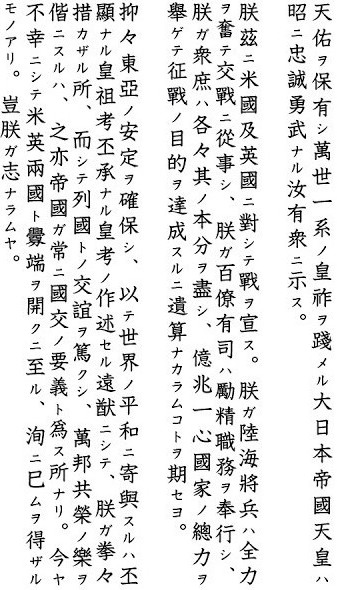 天佑ヲ保有シ萬世一系ノ皇祚ヲ踐メル大日本帝國天皇ハ
昭ニ忠誠勇武ナル汝有衆ニ示ス。
朕茲ニ米國及英國ニ對シテ戰ヲ宣ス。朕ガ陸海將兵ハ全力
ヲ奮テ交戰ニ從事シ、朕ガ百僚有司ハ勵精職務ヲ奉行シ、
朕ガ衆庶ハ各々其ノ本分ヲ盡シ、億兆一心國家ノ總力ヲ
擧ゲテ征戰ノ目的ヲ達成スルニ遺算ナカラムコトヲ期セヨ。
抑々東亞ノ安定ヲ確保シ、以テ世界ノ平和ニ寄與スルハ丕
顯ナル皇祖考丕承ナル皇考ノ作述セル遠猷ニシテ、朕ガ拳々
措カザル所、而シテ列國トノ交誼ヲ篤クシ、萬邦共榮ノ樂ヲ
偕ニスルハ、之亦帝國ガ常ニ國交ノ要義ト爲ス所ナリ。今ヤ
不幸ニシテ米英兩國ト釁端ヲ開クニ至ル、洵ニ已ムヲ得ザル
モノアリ。豈朕ガ志ナラムヤ。